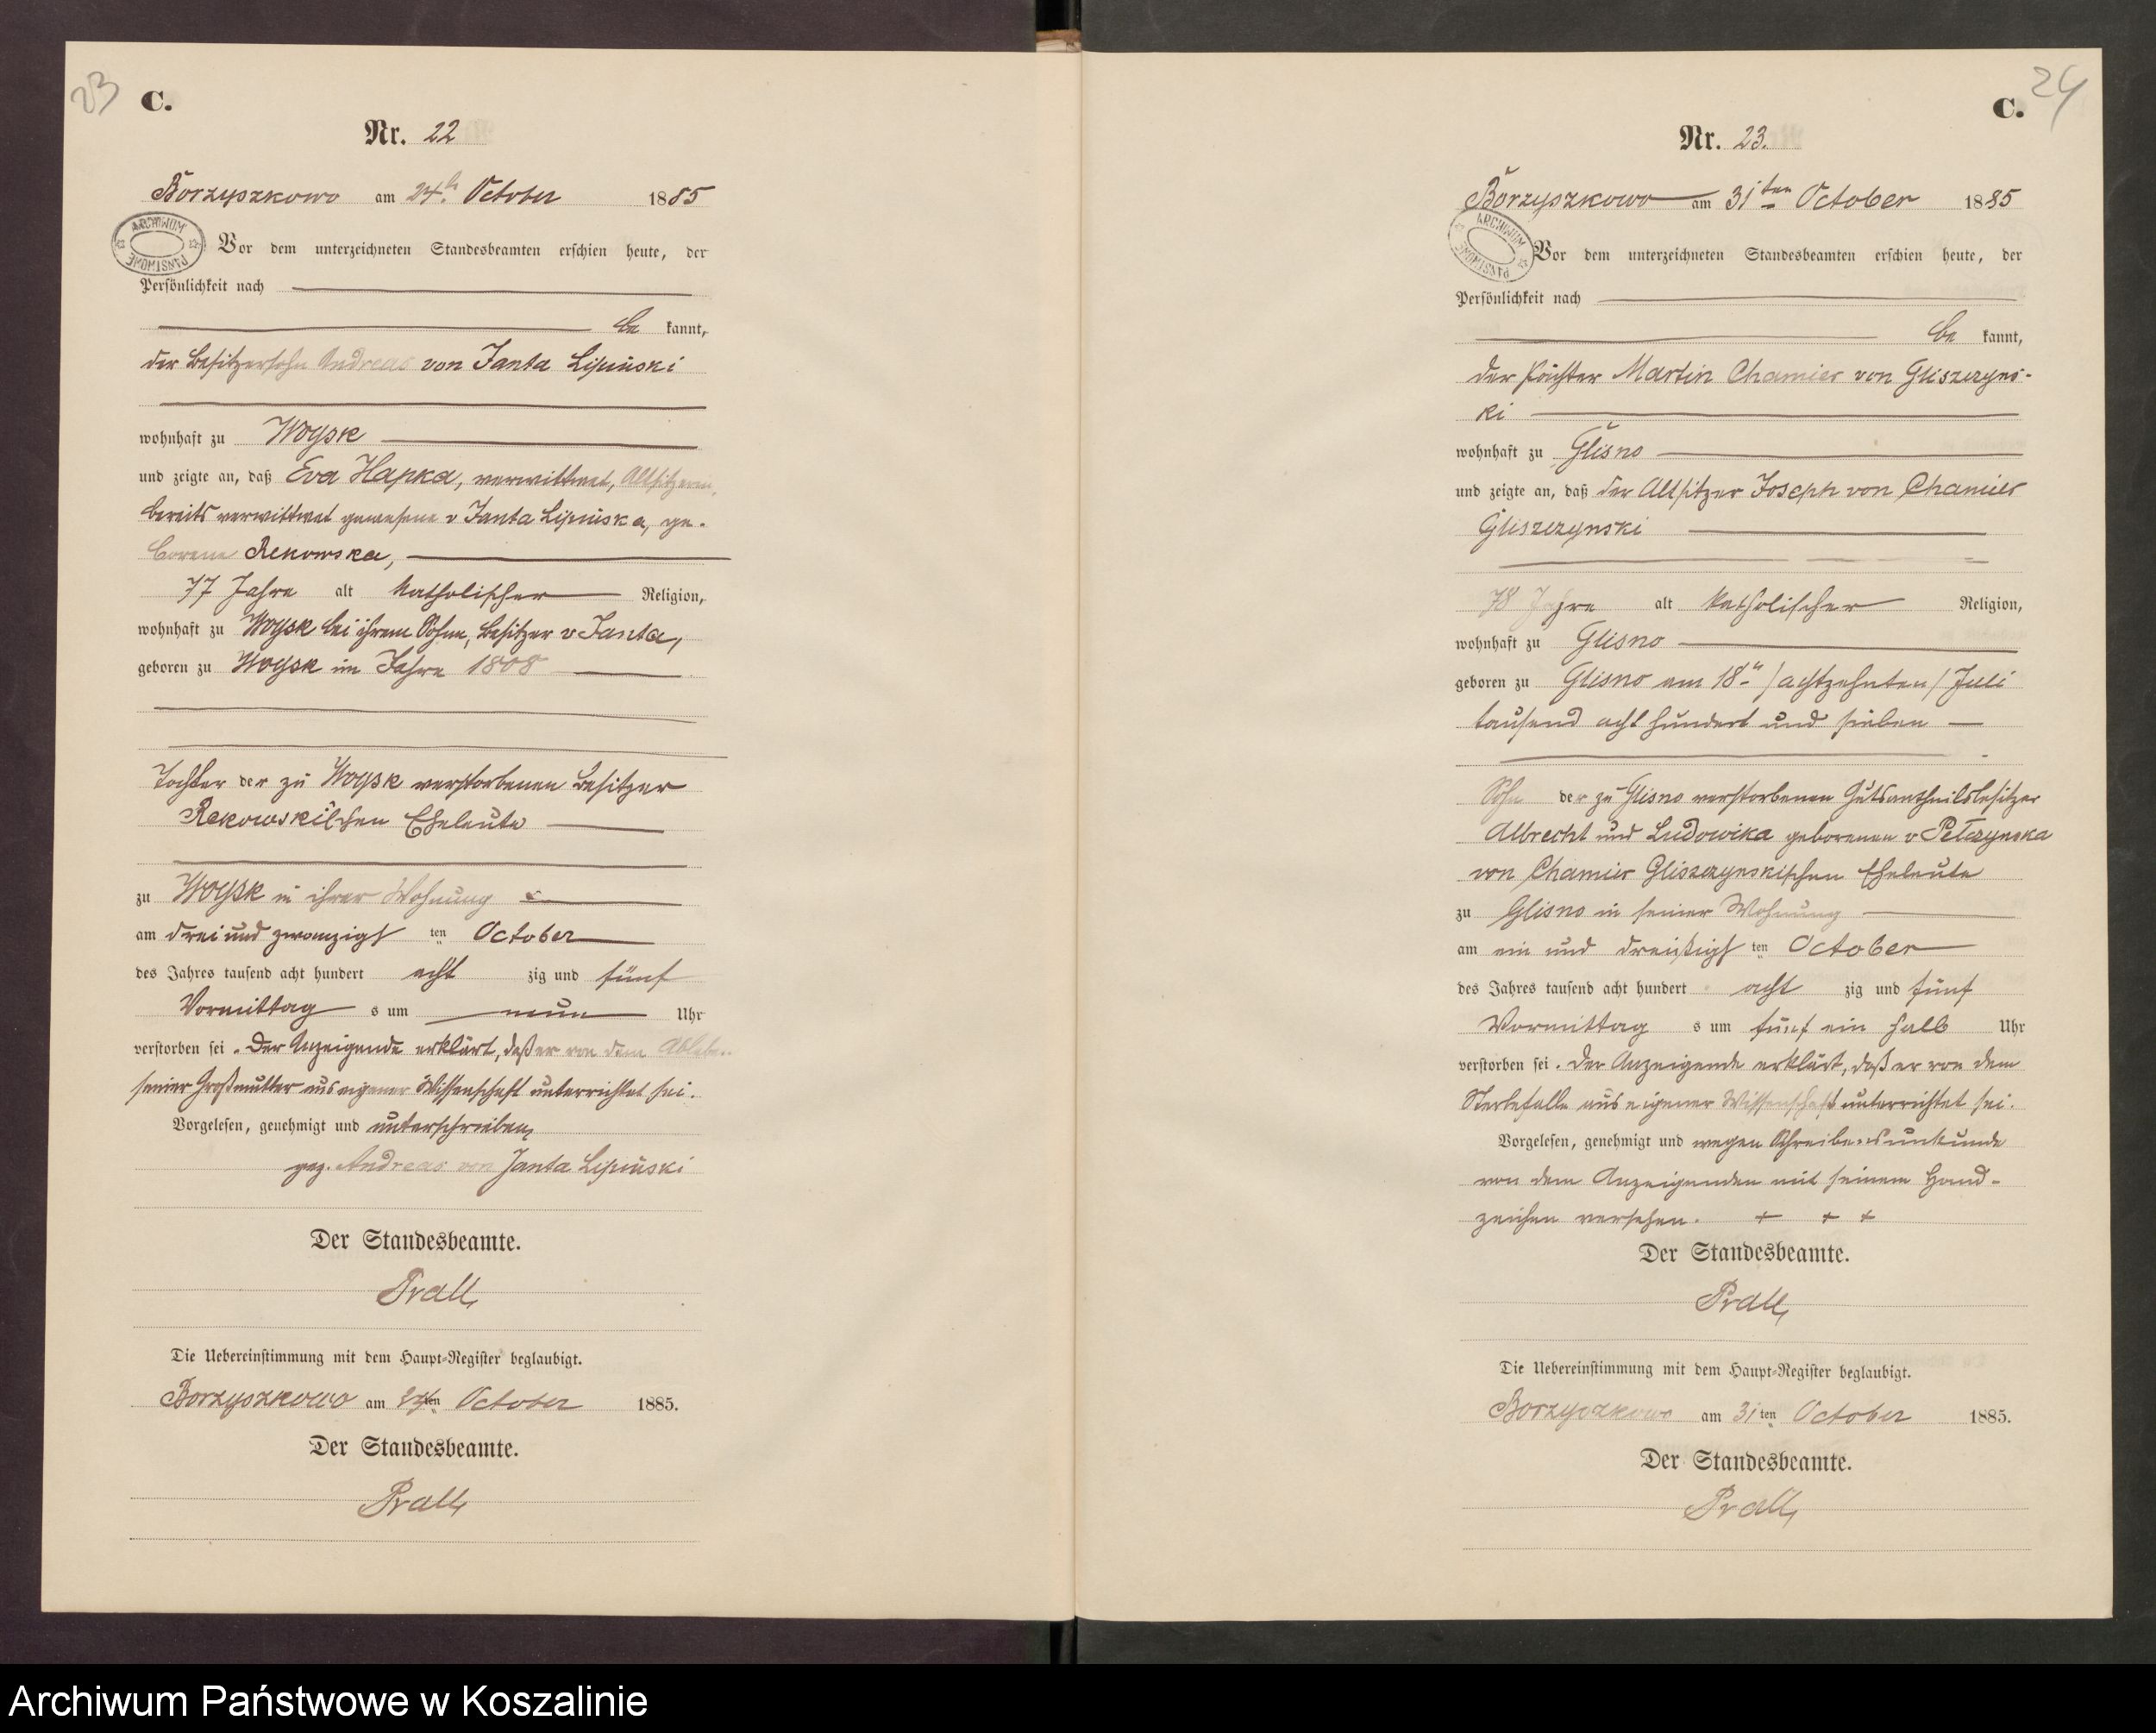 23
C.
Nr. 22
Borzyszkowo am 24t. October 1885
ARCHIWUM PAŃSTWOWE
Vor dem unterzeichneten Standesbeamten erschien heute, der
Persönlichkeit nach
be kannt,
der Besitzersohn Andreas von Janta Lipinski
wohnhaft zu Woysk
und zeigte an, daß Eva Hapka, verwittwet, Altsitzerin,
bereits verwittwet gewesene v Janta Lipinska, ge-
borene Rekowska,
77 Jahre alt katholischer Religion,
wohnhaft zu Woysk bei ihrem Sohne, Besitzer v Janta,
geboren zu Woysk im Jahre 1808
Tochter der zu Woysk verstorbenen Besitzer
Rekowskischen Eheleute
zu Woysk in ihrer Wohnung
am drei und zwanzigs ten October
des Jahres tausend acht hundert acht zig und fünf
Vormittag s um neun Uhr
verstorben sei. Der Anzeigende erklärt, daß er von dem Ableben
seiner Großmutter aus eigener Wissenschaft unterrichtet sei.
Vorgelesen, genehmigt und unterschrieben
gez. Andreas von Janta Lipinski
Der Standesbeamte.
Prall
Die Uebereinstimmung mit dem Haupt-Register beglaubigt.
Borzyszkowo am 24ten October 1885.
Der Standesbeamte.
Prall
24
C.
Nr. 23.
Borzyszkowo am 31ten October 1885
ARCHIWUM PAŃSTWOWE
Vor dem unterzeichneten Standesbeamten erschien heute, der
Persönlichkeit nach
be kannt,
der Pächter Martin Chamier von Gliszczyns-
ki
wohnhaft zu Glisno
und zeigte an, daß der Altsitzer Joseph von Chamier
Gliszczynski
78 Jahre alt katholischer Religion,
wohnhaft zu Glisno
geboren zu Glisno am 18t /achtzehnten/ Juli
tausend acht hundert und sieben
Sohn der zu Glisno verstorbenen Gutsantheilsbesitzer
Albrecht und Ludowika geborenen v Pełczynska
von Chamier Gliszczynskischen Eheleute
zu Glisno in seiner Wohnung
am ein und dreißigs ten October
des Jahres tausend acht hundert acht zig und fünf
Vormittag s um fünf ein halb Uhr
verstorben sei. Der Anzeigende erklärt, daß er von dem
Sterbefalle aus eigener Wissenschaft unterrichtet sei.
Vorgelesen, genehmigt und wegen Schreibensunkunde
von dem Anzeigenden mit seinem Hand-
zeichen versehen. + + +
Der Standesbeamte.
Prall
Die Uebereinstimmung mit dem Haupt-Register beglaubigt.
Borzyszkowo am 31ten October 1885.
Der Standesbeamte.
Prall
Archiwum Państwowe w Koszalinie